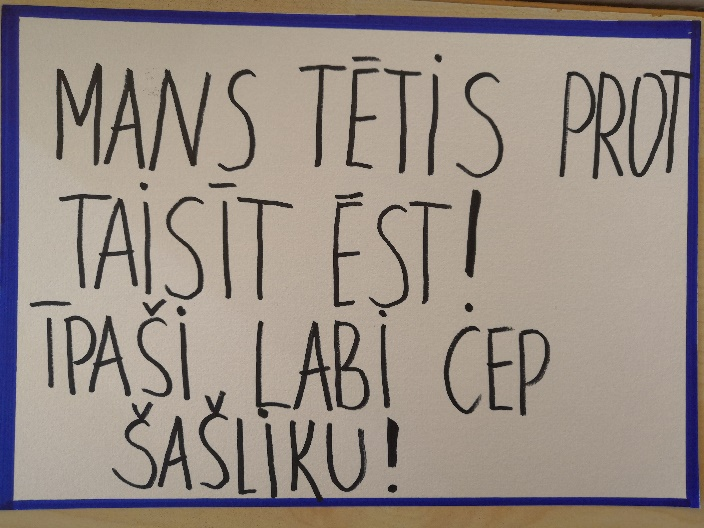 MANS TĒTIS PROT
TAISĪT ĒST!
ĪPAŠI LABI CEP
ŠAŠLIKU!